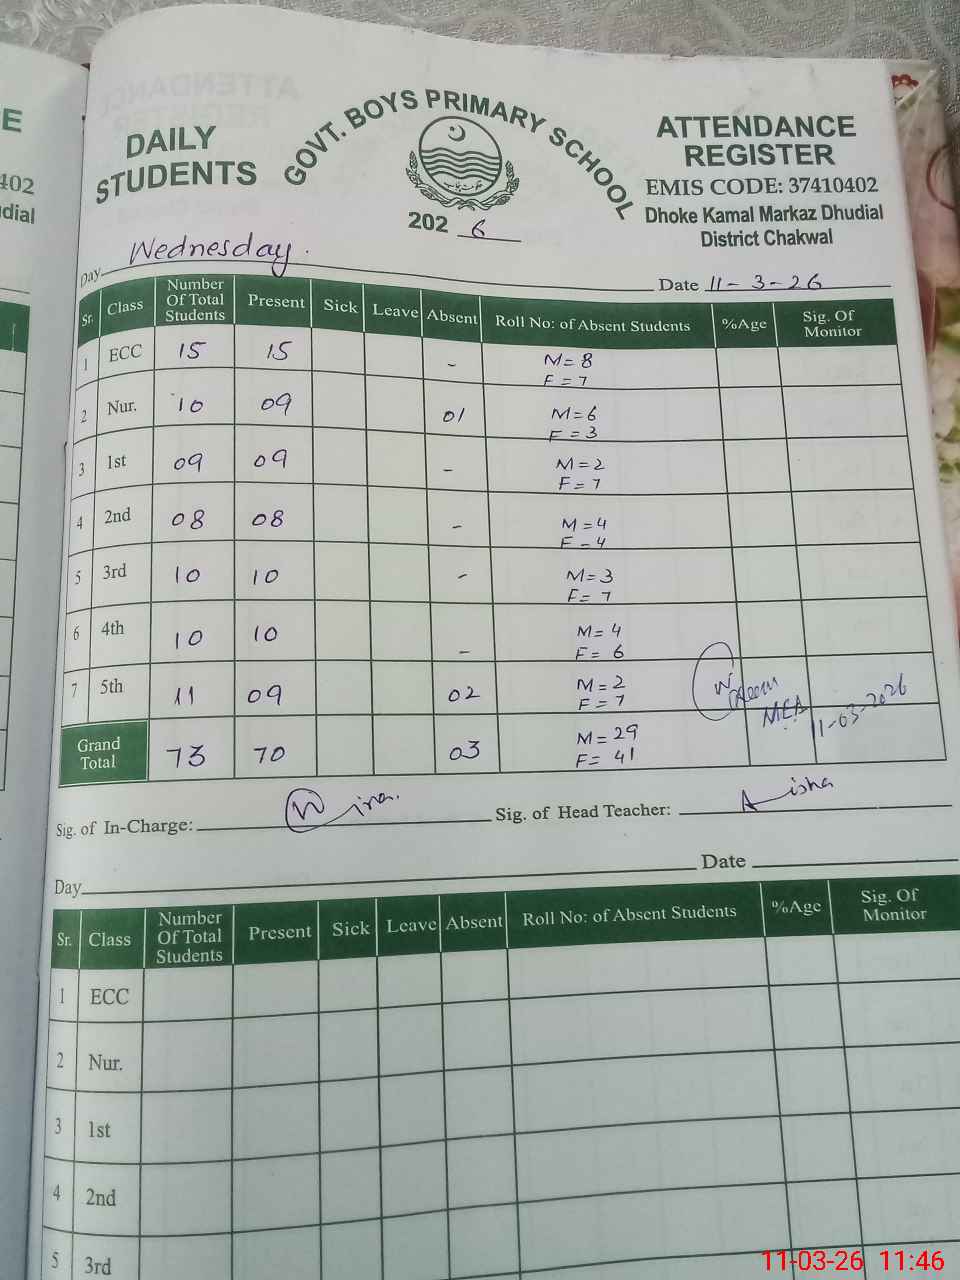 E
402
dial
DAILY
STUDENTS
GOVT. BOYS PRIMARY SCHOOL
2026
ATTENDANCE
REGISTER
EMIS CODE: 37410402
Dhoke Kamal Markaz Dhudial
District Chakwal
Day Wednesday.
Date 11-3-26
Sr. Class Number Of Total Students Present Sick Leave Absent Roll No: of Absent Students %Age Sig. Of Monitor
1 ECC 15 15 - M=8 F=7
2 Nur. 10 09 01 M=6 F=3
3 1st 09 09 - M=2 F=7
4 2nd 08 08 - M=4 F=4
5 3rd 10 10 - M=3 F=7
6 4th 10 10 - M=4 F=6
7 5th 11 09 02 M=2 F=7
MEA
11-03-2026
Grand Total 73 70 03 M=29 F=41
Sig. of In-Charge:
Sig. of Head Teacher: Aisha
Day
Date
Sr. Class Number Of Total Students Present Sick Leave Absent Roll No: of Absent Students %Age Sig. Of Monitor
1 ECC
2 Nur.
3 1st
4 2nd
5 3rd
11-03-26 11:46